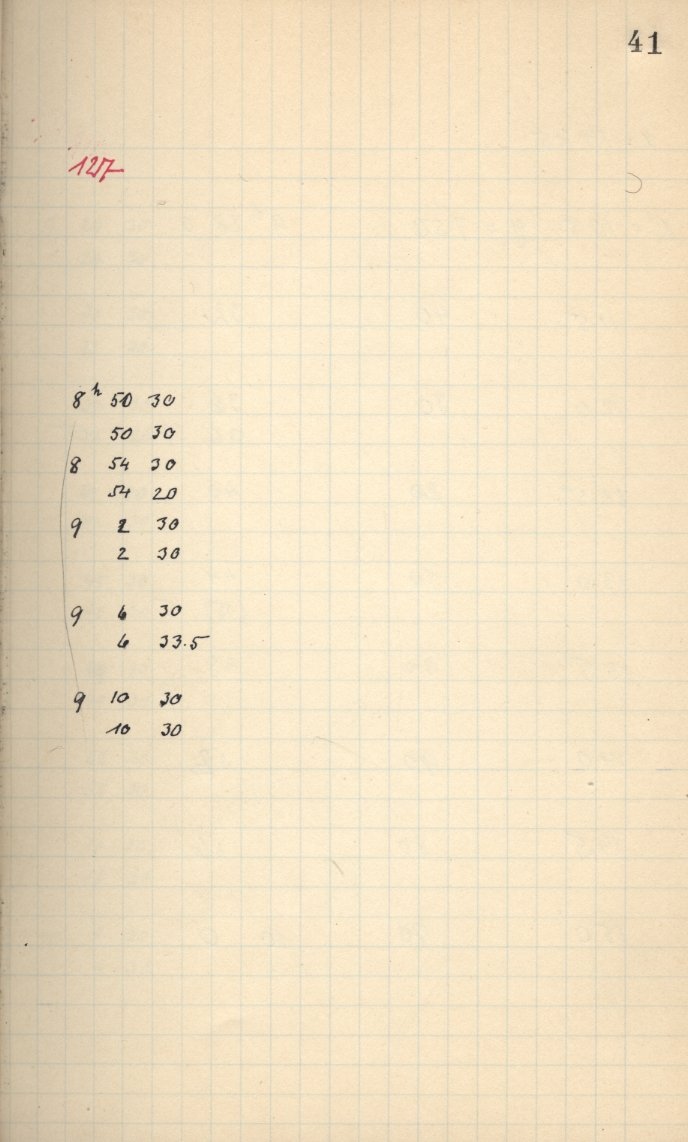 41
127
8h 50 30
50 30
8 54 30
54 20
9 2 30
2 30
9 6 30
6 33.5
9 10 30
10 30